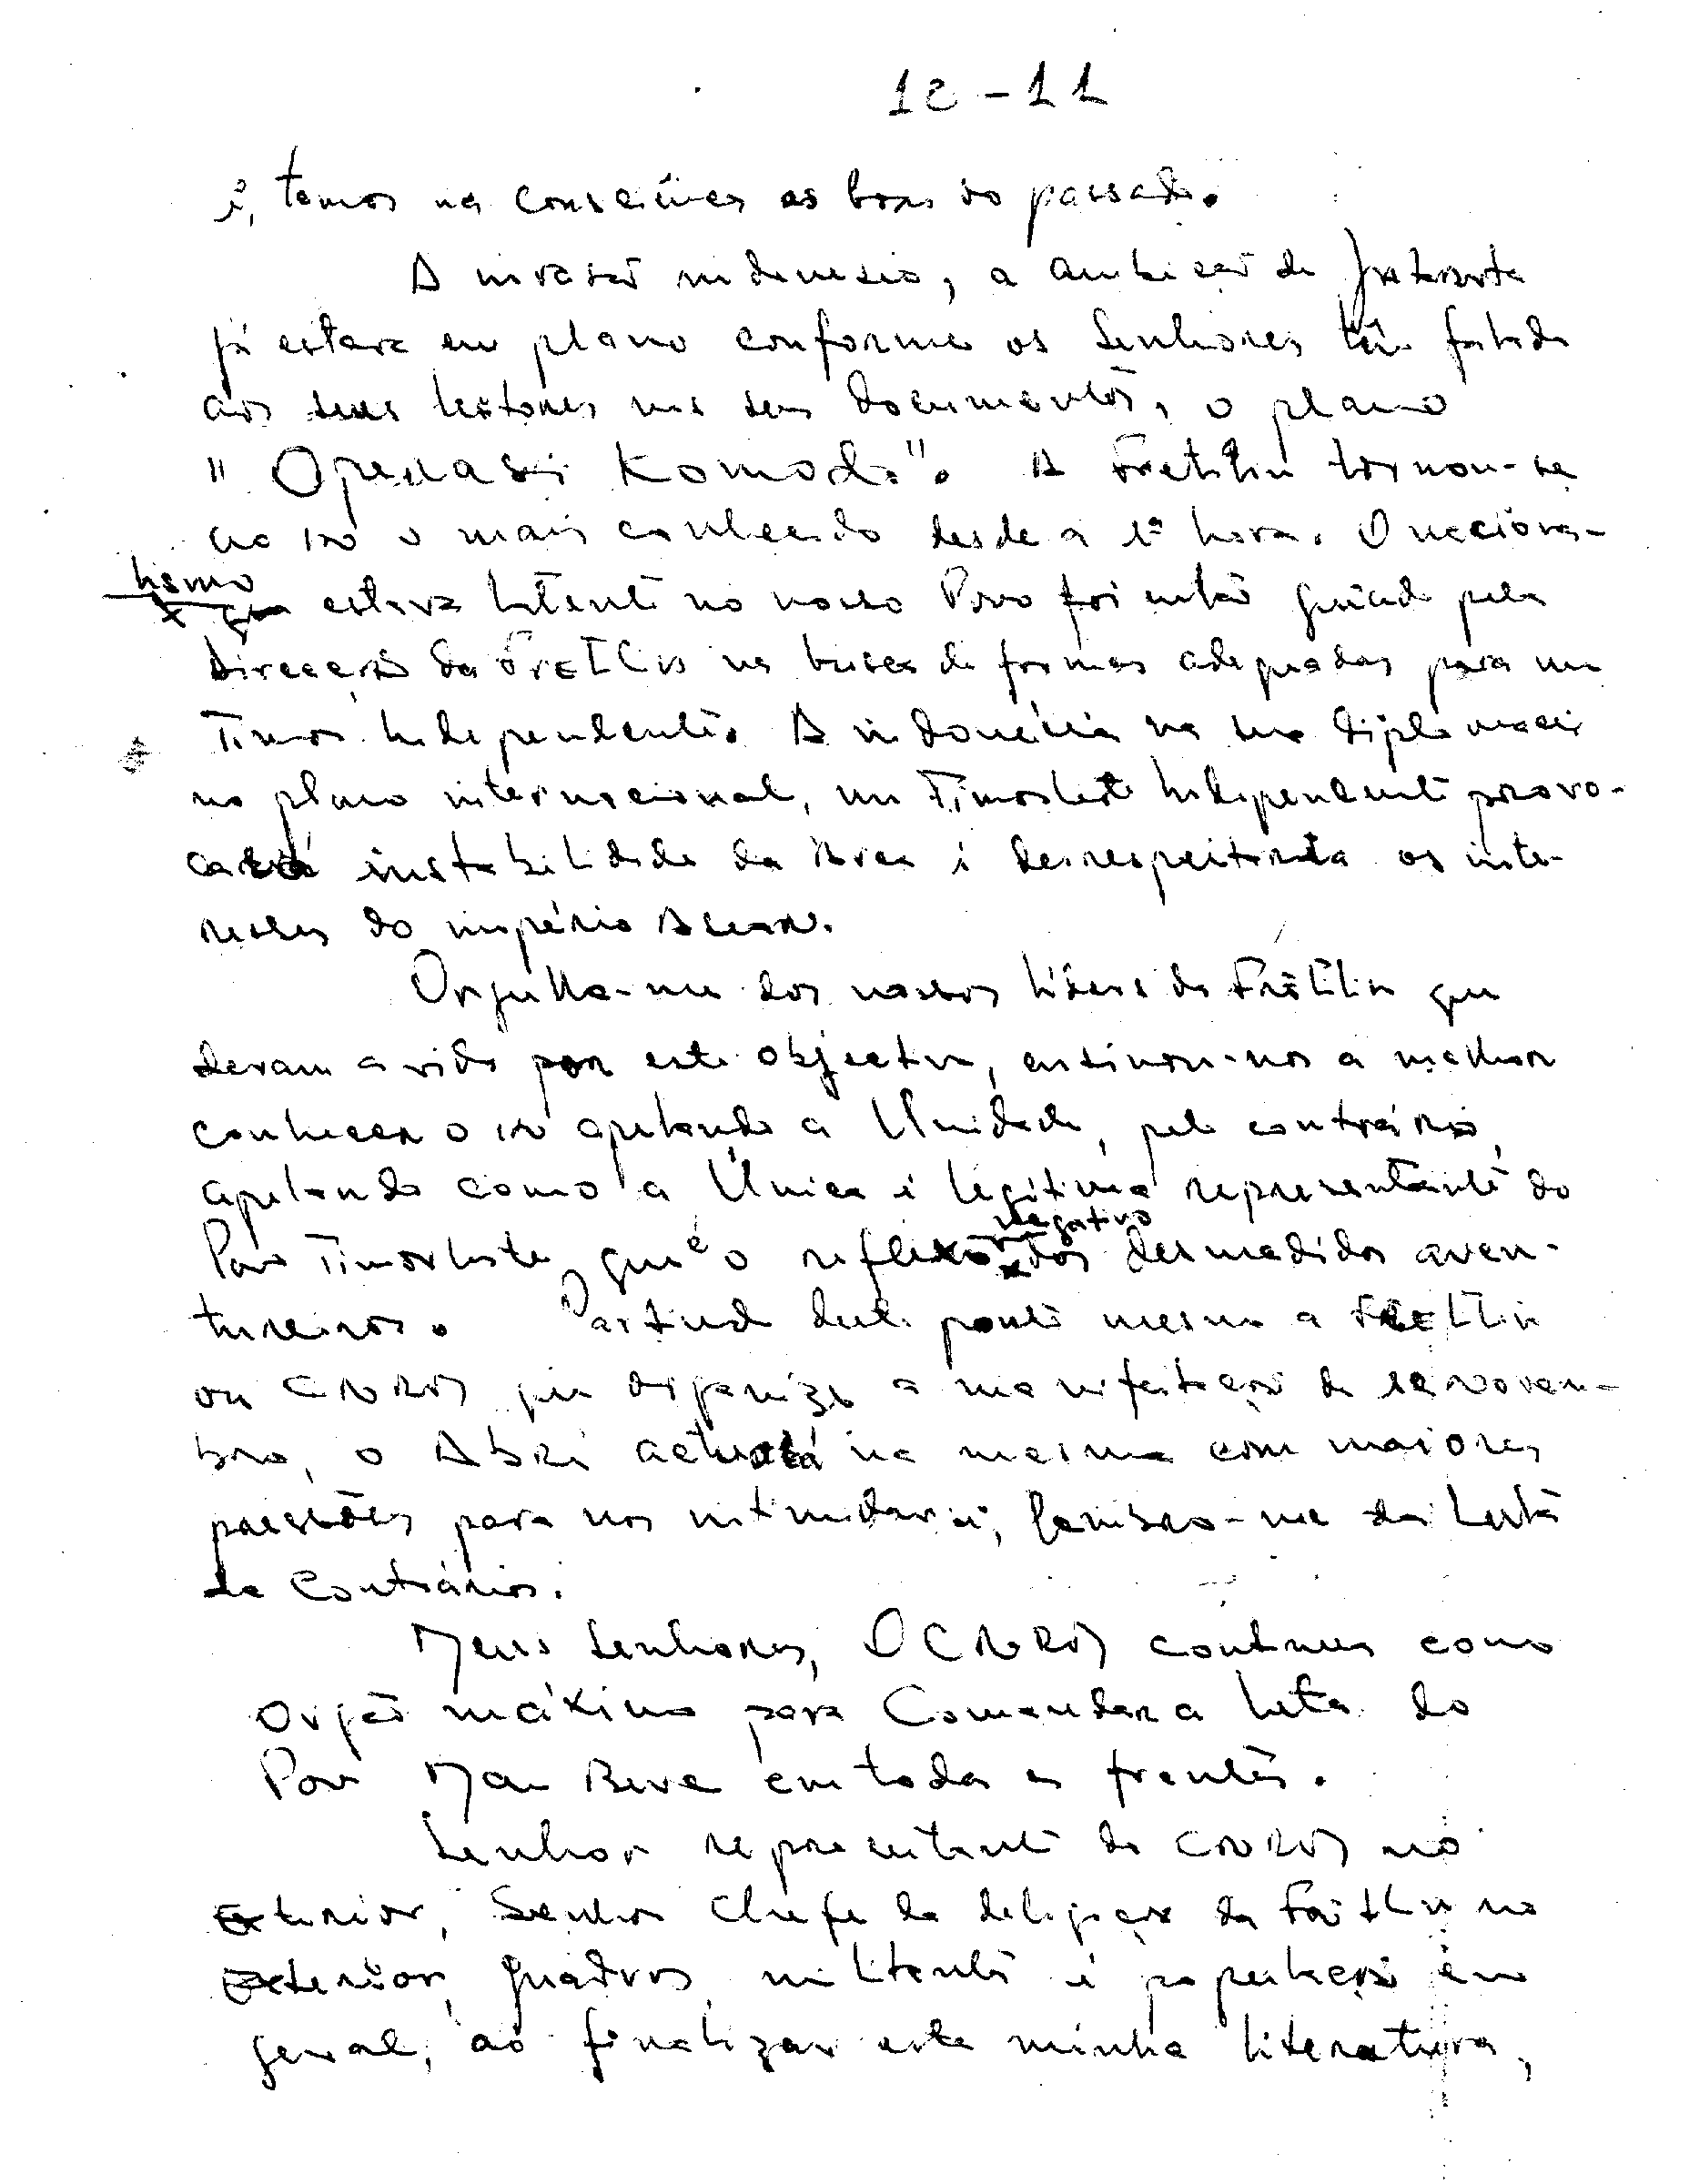 12-11
é, temos na consciência as boas do passado.
A invasão indonésia, a ambição de Jakarta
já estava em plano conforme os Senhores têm
aos seus leitores nos seus documentos, o plano
"Operasi Komodo". A Fretilin tornou-se
no o mais conhecido desde a 1ª hora. O naciona-
lismo
estava latente no nosso Povo foi então guiado pela
Direcção da Fretilin na busca de formas adequadas para um
Timor Independente. A indonésia na sua diplomacia
no plano internacional, um Timorleste Independente provo-
cará instabilidade da Area é desrespeitará os inte-
resses do império Asean.
Orgulha-me dos nossos líderes da Fretilin que
deram a vida por este objectivo, ensinou-nos a melhor
conhecer o apelando a Unidade, pelo contrário,
apelando como a Única é legítima representante do
negativo
Povo Timorleste, que é o reflexo dos desmedidos aven-
tureiros. Partindo deste ponto mesmo a Fretilin
ou CNRM que organiza a manifestação de 12 novem-
bro, o Abri actuará na mesma com maiores
pressões para nos intimidar é, lembro-me da Luta
de Contrários.
Meus Senhores, O CNRM continua como
Orgão máximo para Comandar a luta do
Povo Mau Bere em todas as frentes.
Senhor representante do CNRM no
Exterior, Senhor Chefe da delegação da Fretilin no
Exterior, quadros, militantes é população em
geral, ao finalizar esta minha literatura,